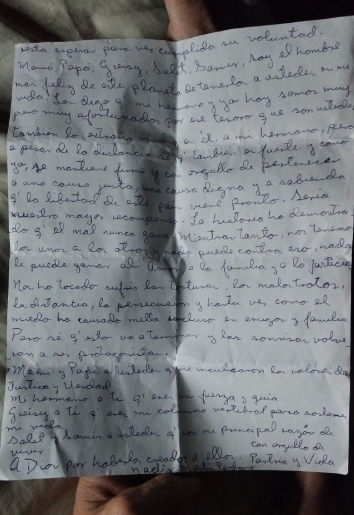 resta esperar para ver cumplida su voluntad.
Mamá, Papá, Geisy, Salet, Samir, soy el hombre
mas feliz de este planeta de tenerlos a ustedes en mi
vida! Le digo a mi hermano q' ya hoy somos muy
pero muy afortunados por ese tesoro que son ustedes
Tambien lo extraño mucho a él, a mi hermano, pero
a pesar de la distancia se q' tambien es fuerte y como
yo, se mantiene firme y con orgullo de pertenecer
a una causa justa, una causa digna y a sabiendas
q' la libertad de este pais viene pronto. Sería
nuestro mayor recompensa. La historia ha demostra
do q' el mal nunca gana. Mientras tanto, nos tenemos
los unos a los otros y nada puede contra eso, nada
le puede ganar al amor a la familia y a la justicia
Nos ha tocado sufrir las torturas, los maltratos,
la distancia, la persecucion y hasta ver como el
miedo ha causado mella incluso en amigos y familia
Pero se q' esto va a terminar y las sonrisas volve
ran a ser protagonistas.
Mami y Papi a ustedes q' me inculcaron los valores de
Justicia y Verdad
Mi hermano a ti q' eres mi fuerza y guia
Geisy a ti q' eres mi columna vertebral para sostener
mi vida
Salet y Samir a ustedes q' son mi principal razón de
vivir
con orgullo de
A Dios por haberla creado a ellos. Patria y Vida